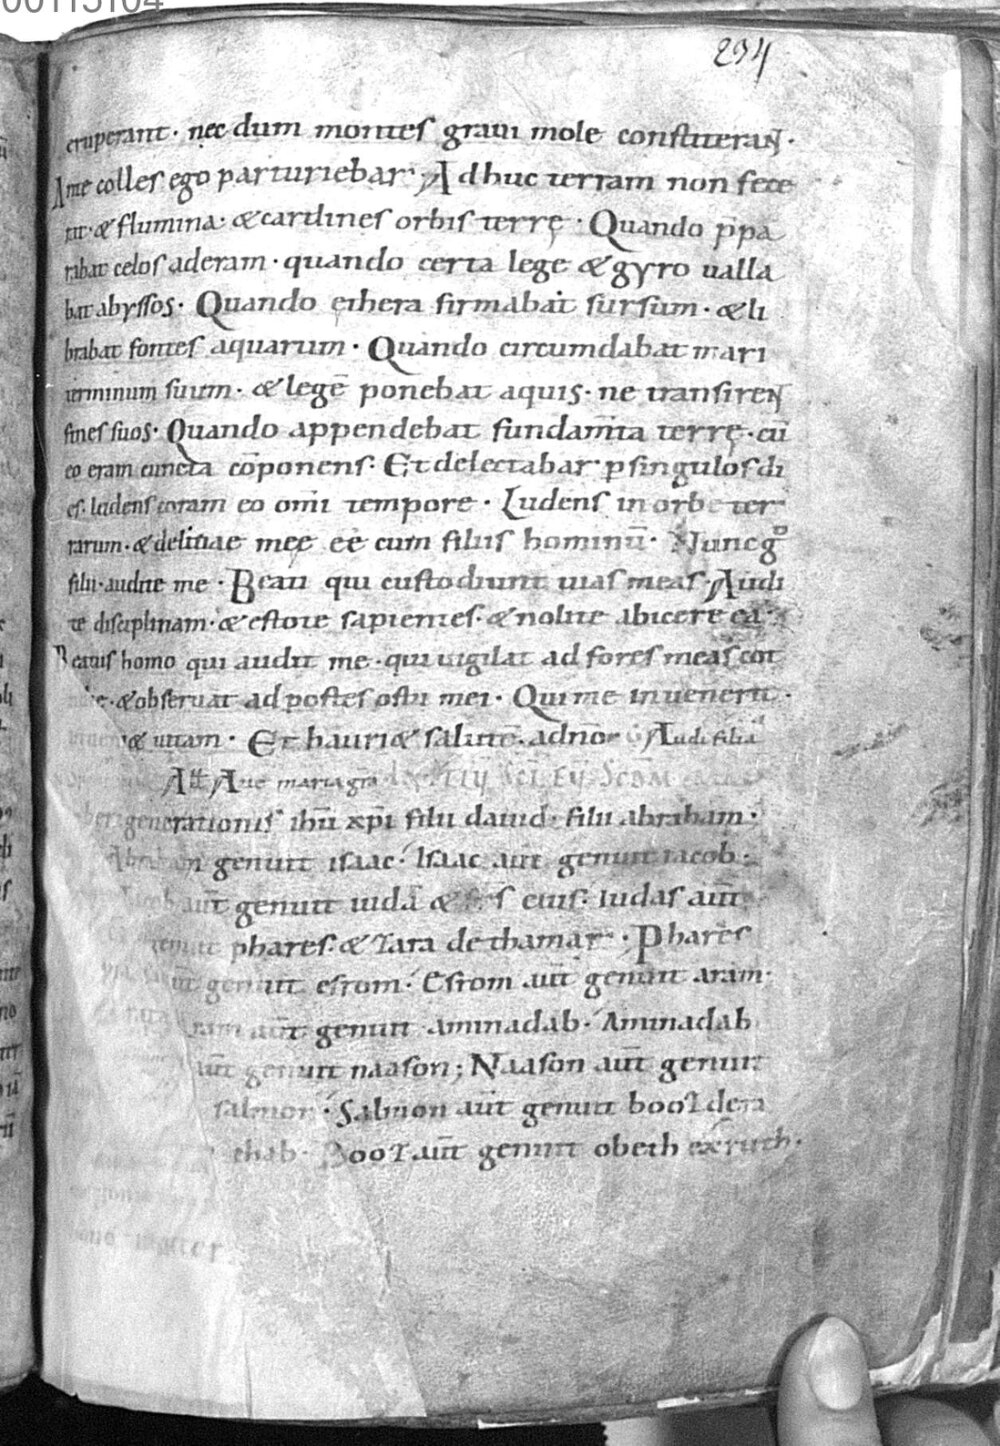 00115104
294
eruperant · nec dum montes graui mole constiteran̄t ·
Ante colles ego parturiebar · Adhuc terram non fece
rat · & flumina · & cardines orbis terrę · Quando p̄pa
rabat celos aderam · quando certa lege & gyro ualla
bat abyssos · Quando ęthera firmabat sursum · & li
brabat fontes aquarum · Quando circumdabat mari
terminum suum · & legē ponebat aquis · ne transirent
fines suos · Quando appendebat fundam̄ta terrę · cū
eo eram cuncta cōponens · Et delectabar p singulos di
es · ludens coram eo omi tempore · Ludens in orbe ter
rarum · & delitiae meę eē cum filiis hominū · Nunc gͦ
filii · audite me · Beati qui custodiunt uias meas · Audi
te disciplinam · & estote sapientes · & nolite abicere eā
Beatus homo qui audit me · qui uigilat ad fores meas cot
& obseruat ad postes ostii mei · Qui me inuenerit ·
& uitam · Et hauri& salutē · a dn̄o Audi filia
Aue maria gra
generationis ihū xpi filii dauid · filii abraham ·
Abraham genuit isaac · Isaac aut̄ genuit iacob ·
aut̄ genuit iudā & eius · Iudas aut̄
genuit phares · & zara de thamar · Phares
aut̄ genuit esrom · Esrom aut̄ genuit aram ·
aut̄ genuit aminadab · Aminadab
aut̄ genuit naason ; Naason aut̄ genuit
salmon · Salmon aut̄ genuit booz de ra
chab · Booz aut̄ genuit obeth ex ruth ·